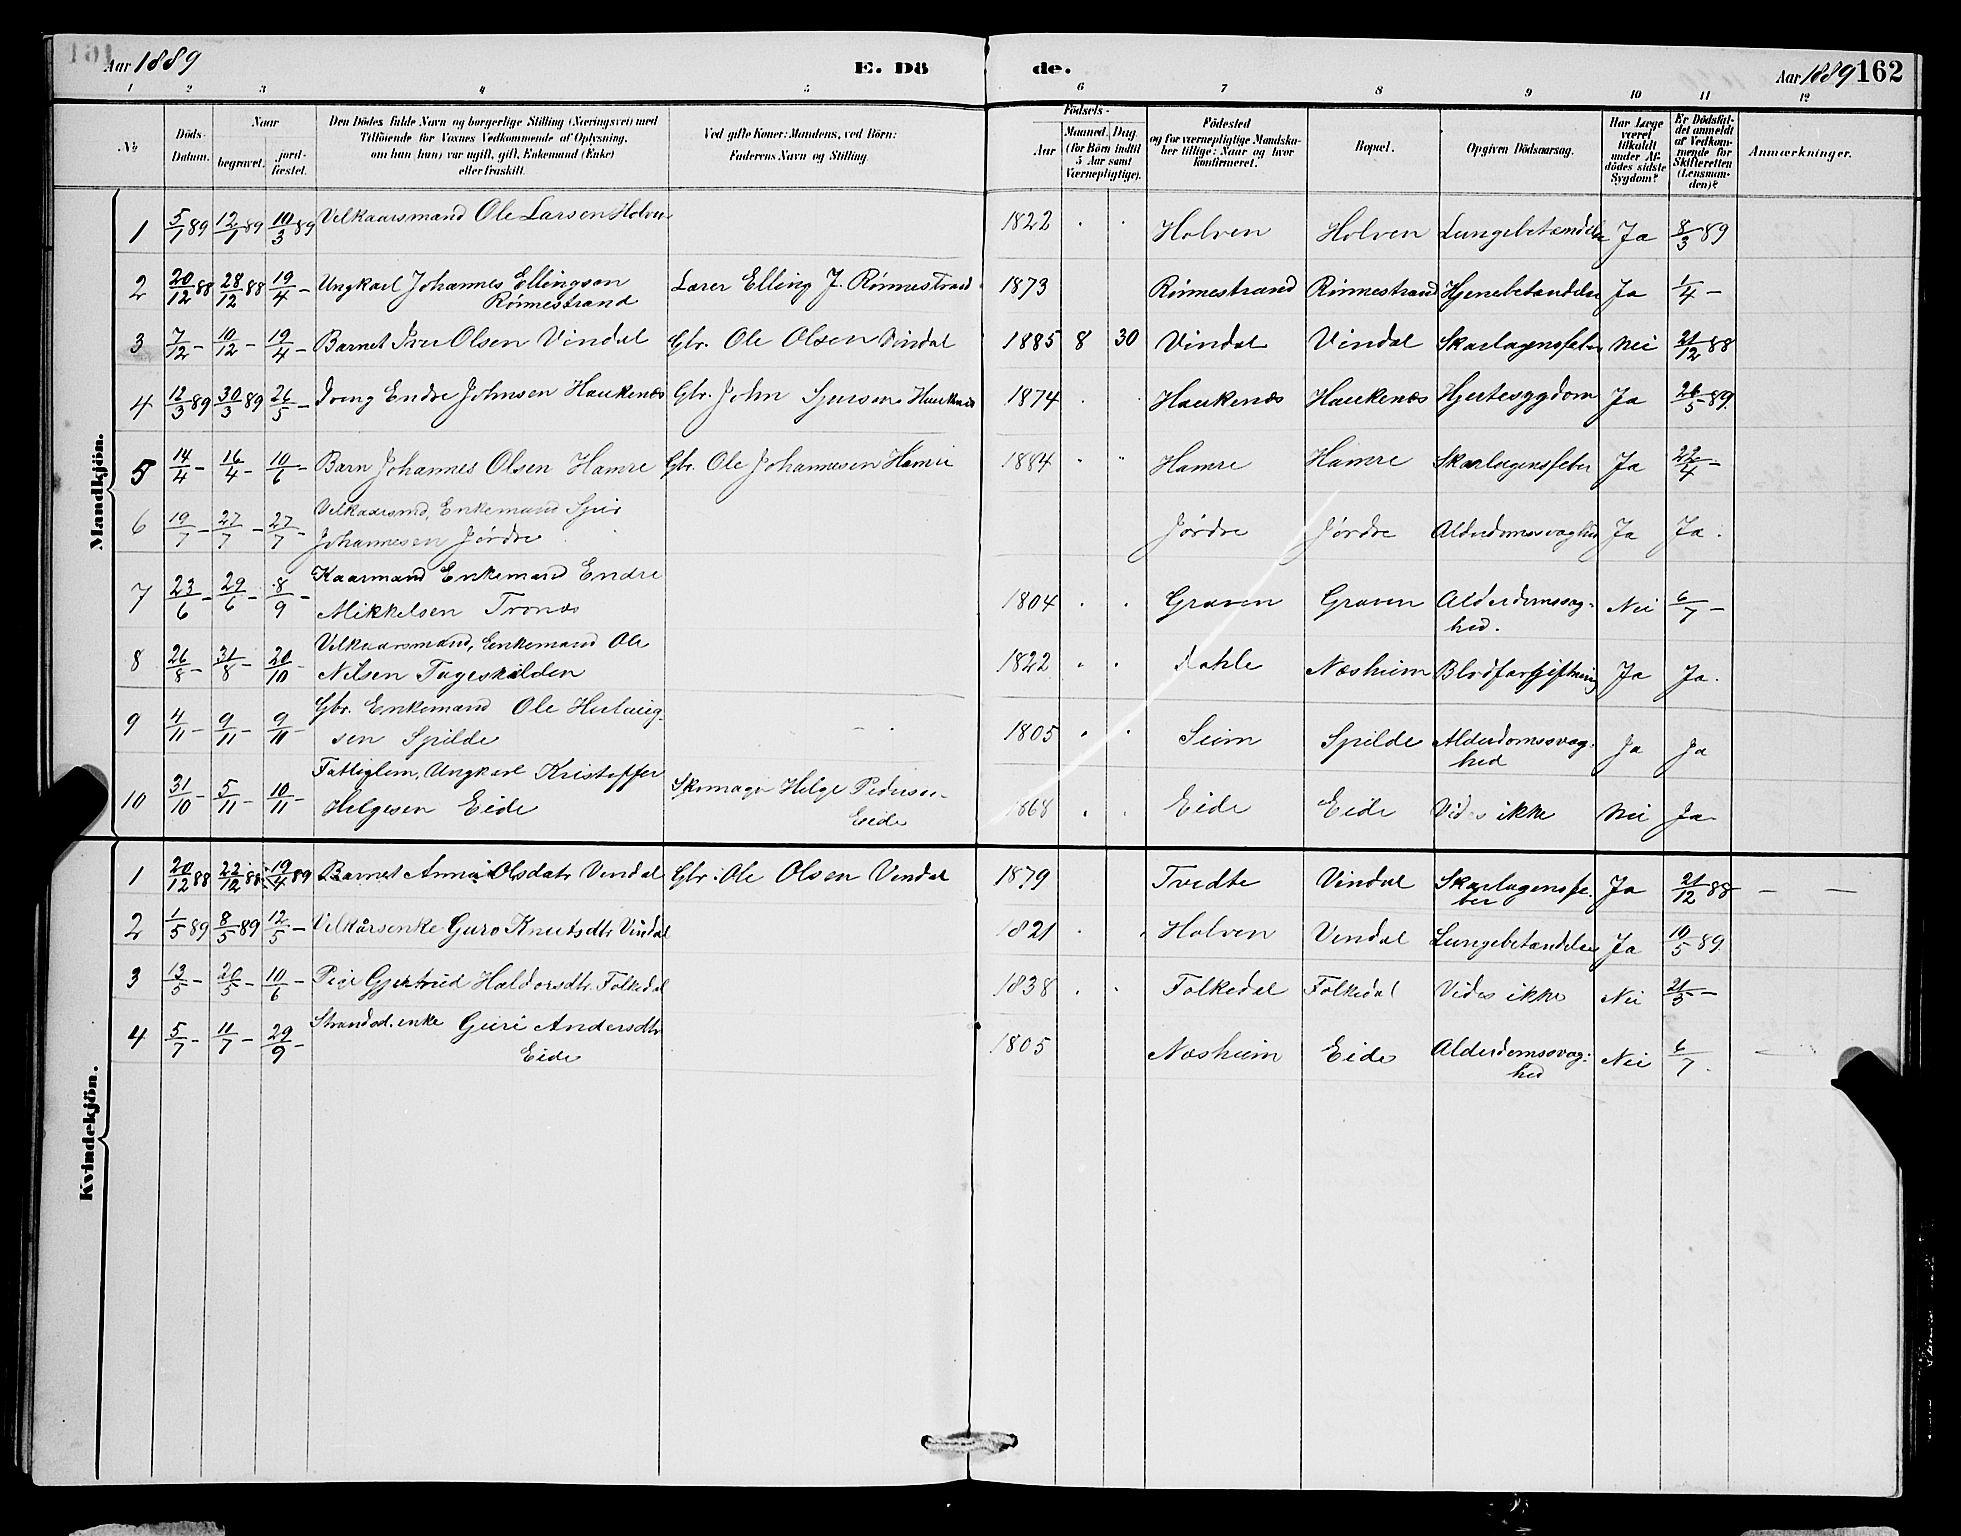 Aar 1889
E. Dö de.
Aar 1889 162
1 2 3 4 5 6 7 8 9 10 11 12
№
Döds-Datum.
Naar
begravet.
jord-fæstet.
Den Dödes fulde Navn og borgerlige Stilling (Næringsvei) med
Tilföiende for Voxnes Vedkommende af Oplysning,
om han (hun) var ugift, gift, Enkemand (Enke)
eller fraskilt.
Ved gifte Koner: Mandens, ved Börn:
Faderens Navn og Stilling.
Födsels-
Aar
Maaned. Dag.
(for Börn indtil
5 Aar samt
Værnepligtige).
Födested
og for værnepligtige Mandska-
ber tillige: Naar og hvor
konfirmeret.
Bopæl.
Opgiven Dödsaarsag.
Har Læge
været
tilkaldt
under Af-
dödes sidste
Sygdom?
Er Dödsfal-
det anmeldt
af Vedkom-
mende for
Skifteretten
(Lensman-
den)?
Anmærkninger.
Mandkjön.
1 5/1 89 12/1 89 10/3 89 Velkaarsmand Ole Larsen Holven 1822 Holven Holven Lungebetændelse Ja 8/3 89
2 20/12 88 28/12 88 19/4 – Ungkarl Johannes Ellingsen Lærer Elling J. Rönnestrand 1873 Rönnestrand Rönnestrand Hjernebetændelse Ja 1/4 –
Rönnestrand
3 7/12 – 10/12 – 19/4 – Barnet Iver Olsen Vindal Gbr. Ole Olsen Vindal 1885 8 30 Vindal Vindal Skarlagensfeber Nei 21/12 88
4 12/3 89 30/3 89 26/5 – Dreng Endre Johnsen Haukenæs Gbr. John Sjursen Haukenæs 1874 Haukenæs Haukenæs Hjertesygdom Ja 26/5 89.
5 14/4 – 16/4 – 10/6 – Barn Johannes Olsen Hamre Gbr. Ole Johannesen Hamre 1884 " Hamre Hamre Skarlagensfeber Ja 22/4 –
6 19/7 – 27/7 – 27/7 – Velkaarsmd, Enkemand Sjur
Johannesen Jördre Jördre Jördre Alderdomssvaghed Ja Ja.
7 23/6 – 29/6 – 8/9 – Kaarmand Enkemand Endre
Mikkelsen Tronæs 1804 Graven Graven Alderdomssvag- Nei 6/7 –
hed.
8 26/8 – 31/8 – 20/10 – Velkaarsmand, Enkemand Ole
Nilsen Tageskilden 1822 Dahle Næsheim Blodforgiftning Ja Ja.
9 4/11 – 9/11 – 9/11 – Gbr. Enkemand Ole
sen Spilde 1805 Seim Spilde Alderdomssvag- Ja Ja
hed
10 31/10 – 5/11 – 10/11 – Fattiglem, Ungkarl Kristoffer Skomager Helge Pedersen
Helgesen Eide Eide 1868 Eide Eide Vides ikke Nei Ja
Kvindekjön.
1 20/12 88 22/12 88 19/4 89 Barnet Anna Olsdatr Vindal Gbr. Ole Olsen Vindal 1879 Tvedte Vindal Skarlagensfe- Ja 21/12 88 – –
ber
2 1/5 89 8/5 89 12/5 – Velkårsenke Guro Knutsdtr Vindal 1821 Holven Vindal Lungebetændelse Ja 10/5 89
3 13/5 – 20/5 – 10/6 – Pige Gjertrud Haldorsdtr. Folkedal 1838 Folkedal Folkedal Vides ikke Nei 21/5 –
4 5/7 – 11/7 – 29/9 – Strandsd.enke Guri Andersdtr
Eide 1805 Næsheim Eide Alderdomssvag- Nei 6/7.
hed